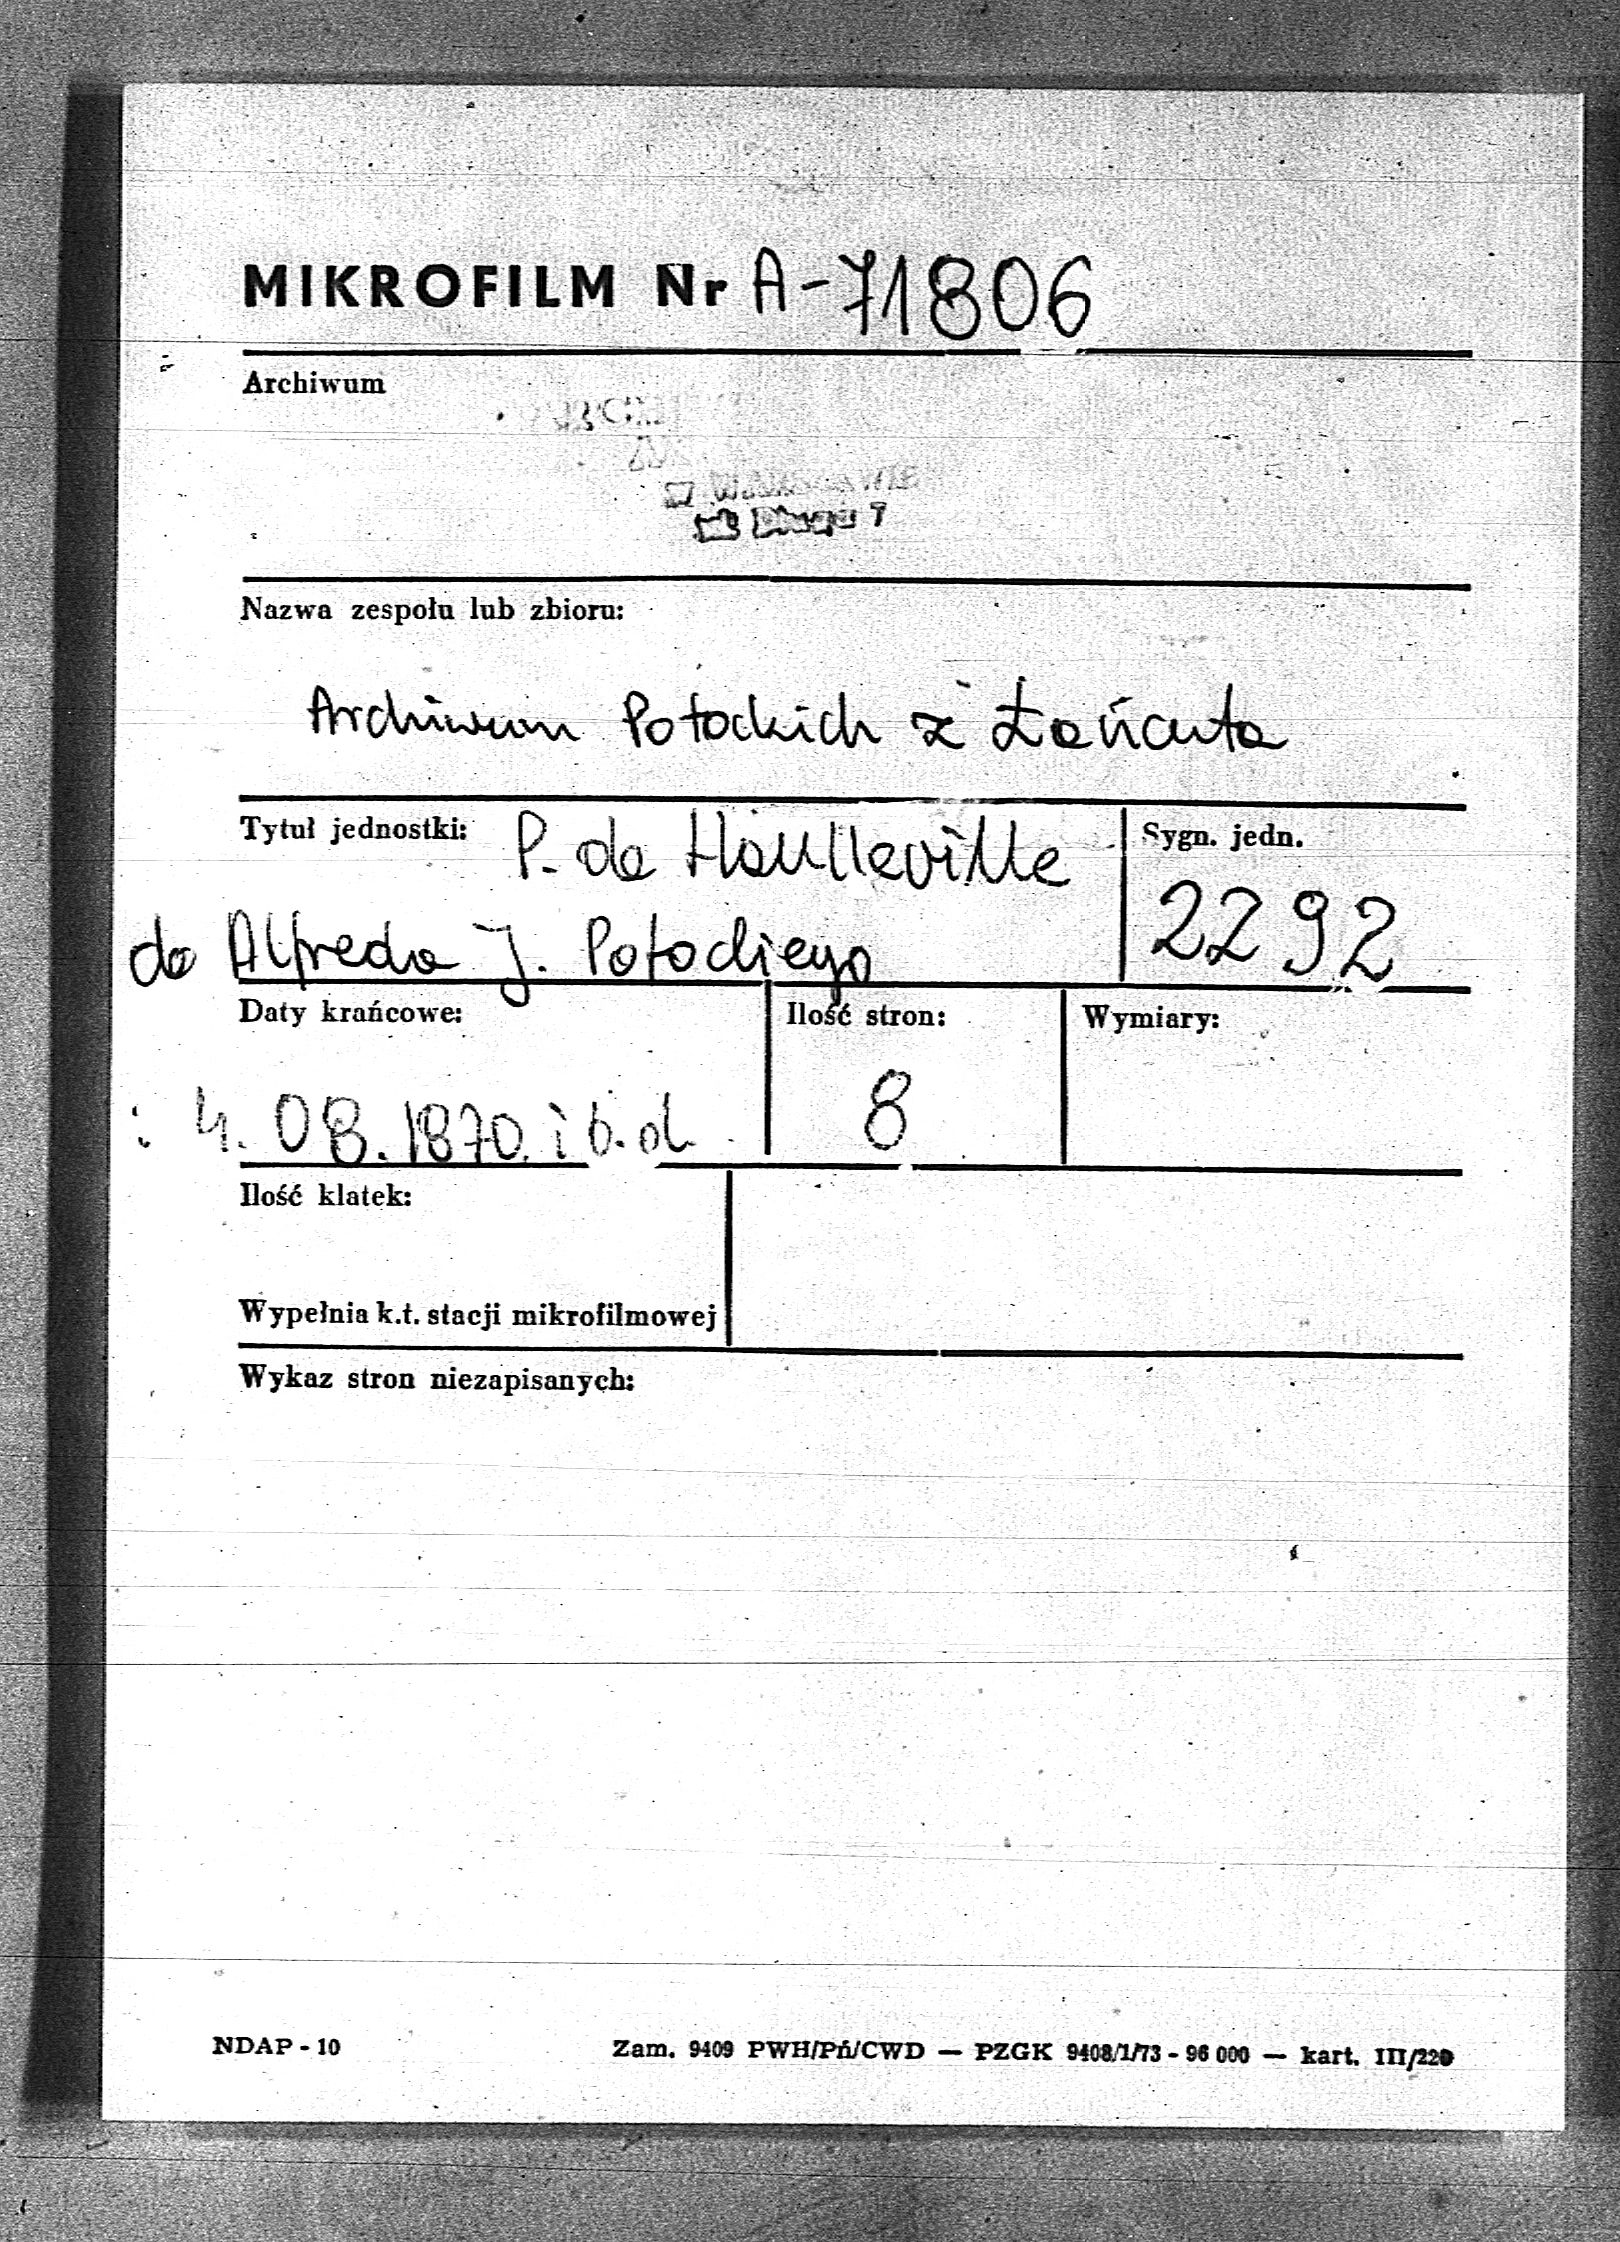 MIKROFILM Nr A-71806
Archiwum
Długa 7
Nazwa zespołu lub zbioru:
Archiwum Potockich z Łańcuta
Tytuł jednostki: P. de Haulleville
Sygn. jedn.
2292
do Alfreda J. Potockiego
Daty krańcowe:
Ilość stron:
Wymiary:
4. 08. 1870. i b. d
8
Ilość klatek:
Wypełnia k.t. stacji mikrofilmowej
Wykaz stron niezapisanych:
NDAP - 10
Zam. 9409 PWH/Pń/CWD — PZGK 9408/1/73 - 96 000 — kart. III/220